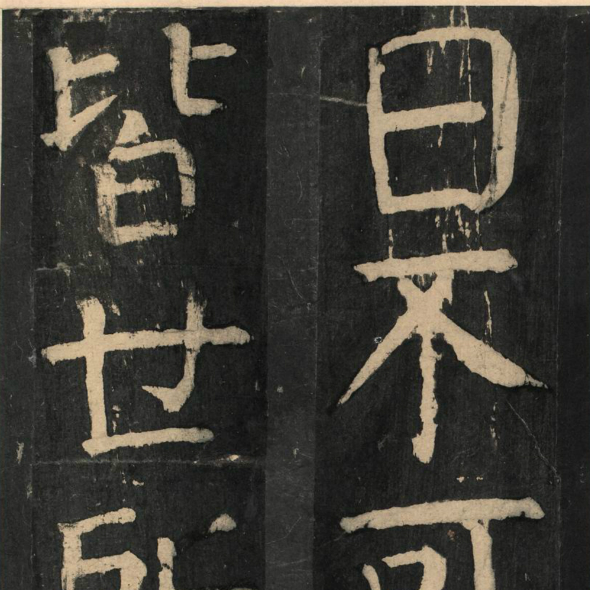 曰不可
皆世所